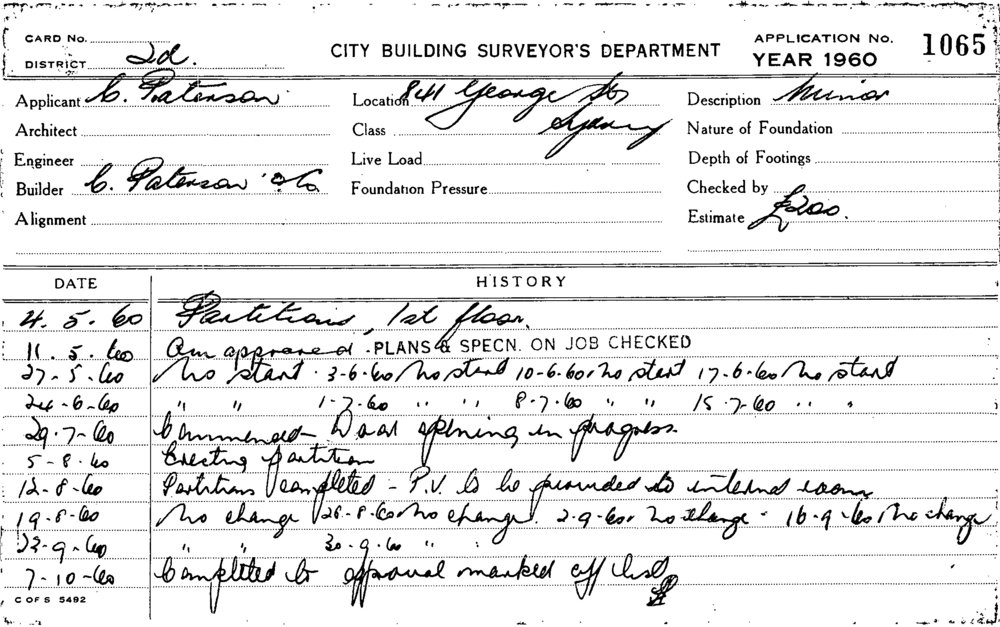 CARD No.
DISTRICT 2d.
CITY BUILDING SURVEYOR'S DEPARTMENT
APPLICATION No. 1065
YEAR 1960
Applicant C. Paterson
Location 841 George St
Description Minor
Architect
Class Sydney
Nature of Foundation
Engineer
Live Load
Depth of Footings
Builder C. Paterson & Co
Foundation Pressure
Checked by
Alignment
Estimate £200.
DATE HISTORY
4. 5. 60 Partitions, 1st floor.
11. 5. 60 approved. PLANS & SPECN. ON JOB CHECKED
27-5-60 No start. 3-6-60 No start 10-6-60 No start 17-6-60 No start
24-6-60 " " 1-7-60 " " 8-7-60 " " 15-7-60 " "
29-7-60 Commenced - Door opening in progress.
5-8-60 Erecting partition
12-8-60 Partitions completed - P.V. to be provided to internal room
19-8-60 No change 26-8-60 No change. 2-9-60 No change - 16-9-60 No change
23-9-60 " " 30-9-60 " "
7-10-60 Completed to approval marked off list
C OF S 5492